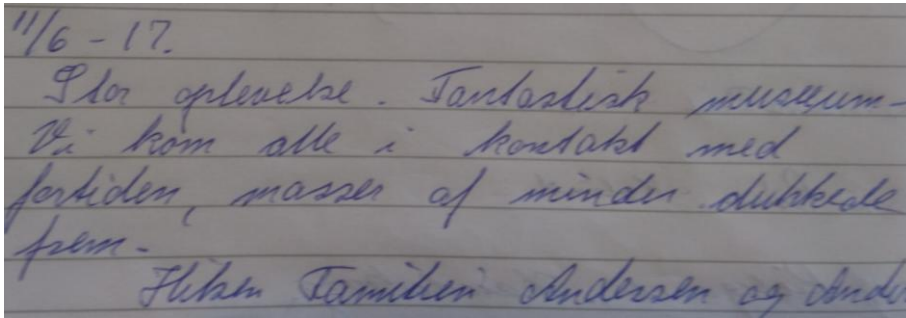 11/6 - 17.
Stor oplevelse. Fantastisk museum -
Vi kom alle i kontakt med
fortiden, masser af minder dukkede
frem -
Hilsen Familien Andersen og